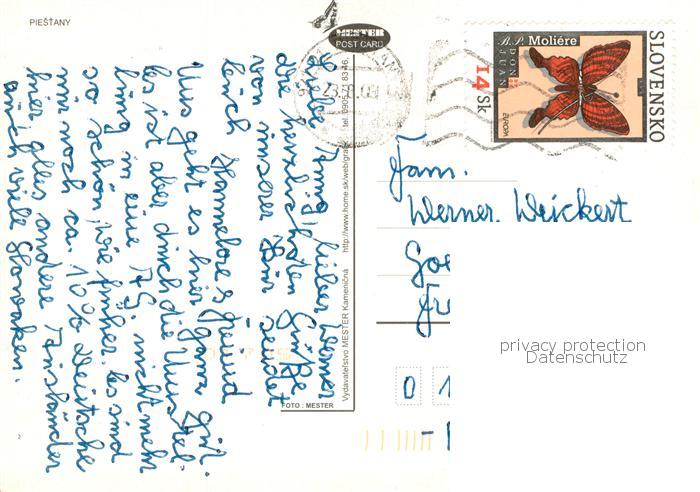 PIEŠŤANY
MESTER
POST CARD
B.P. Moliére
DON JUAN
14 Sk
EUROPA
SLOVENSKO
Liebe Anny, lieber Werner
die herzlichsten Grüße
von unserer Kur sendet
Euch Hannelore &
Uns geht es hier ganz gut.
Es ist aber durch die Umstel-
lung in eine AG. nicht mehr
so schön, wie früher. Es sind
nur noch ca. 10% Deutsche
hier alles andere Ausländer
auch viele Slowaken.
FOTO : MESTER
Vydavateľstvo MESTER Kameničná http://www.home.sk/web/grafik
Fam.
Werner Weickert
0 1
privacy protection
Datenschutz